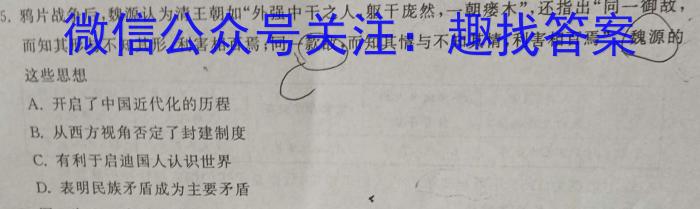 5. 鸦片战争后,魏源认为清王朝如“外强中干之人,躯干庞然,一朝痿木”,还指出“同一御敌,
微信公众号关注:趣找答案
而知其形与不知其形,利害相百焉;同一款敌,而知其情与不知其情,利害相百焉”。魏源的
这些思想
A. 开启了中国近代化的历程
B. 从西方视角否定了封建制度
C. 有利于启迪国人认识世界
D. 表明民族矛盾成为主要矛盾